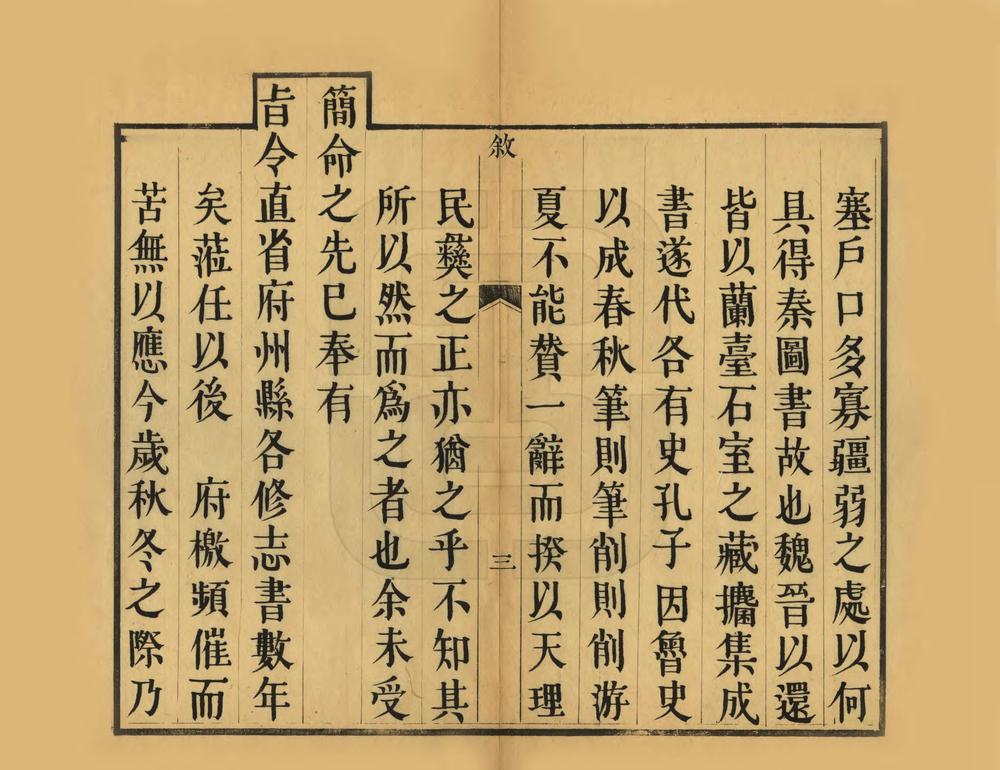 塞戶口多寡疆弱之處以何
具得秦圖書故也魏晉以還
皆以蘭臺石室之藏攟集成
書遂代各有史孔子因魯史
以成春秋筆則筆削則削游
夏不能賛一辭而揆以天理
敘
三
民彝之正亦猶之乎不知其
所以然而爲之者也余未受
簡命之先巳奉有
旨令直省府州縣各修志書數年
矣蒞任以後 府檄頻催而
苦無以應今歲秋冬之際乃